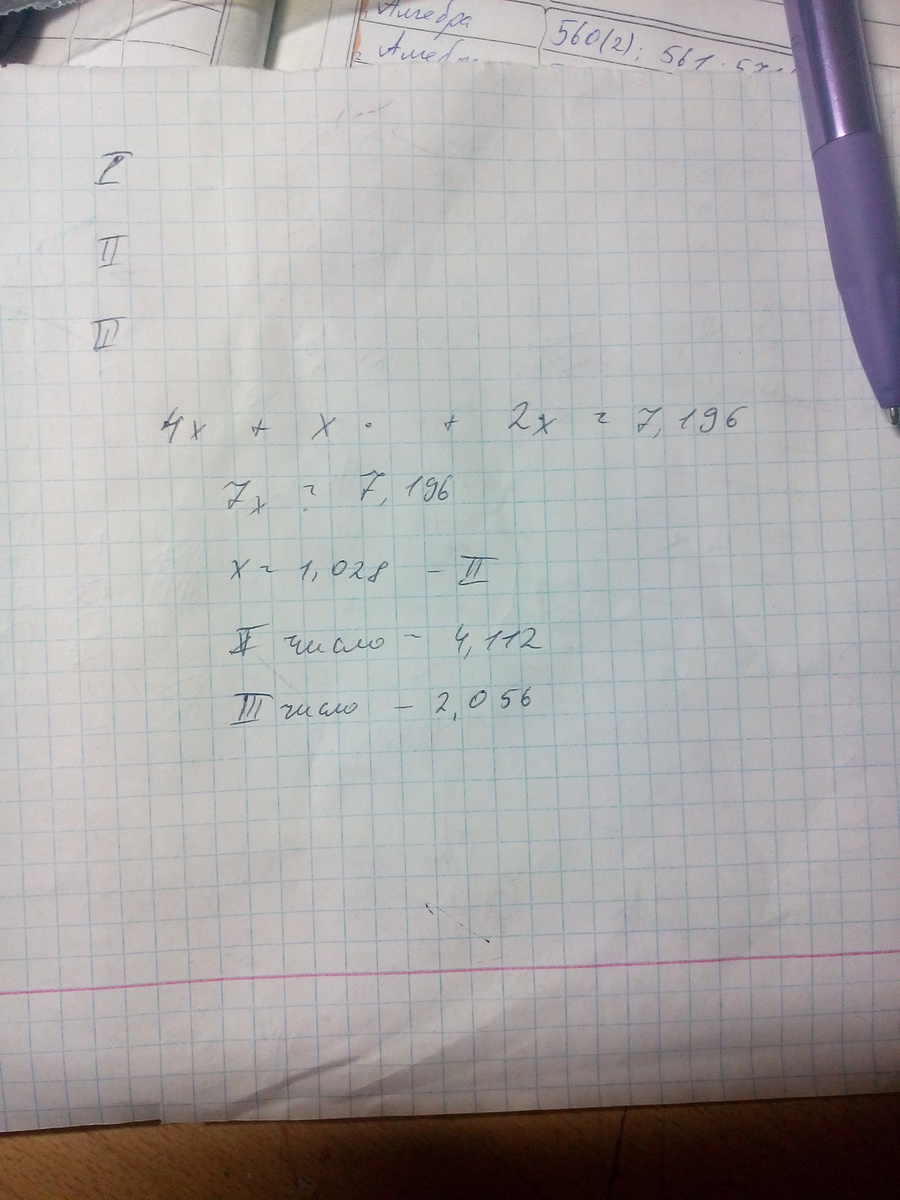 Алгебра
560(2); 561
I
II
II
4x + x · + 2x = 7,196
7x = 7,196
x = 1,028 – II
I число – 4,112
III число – 2,056